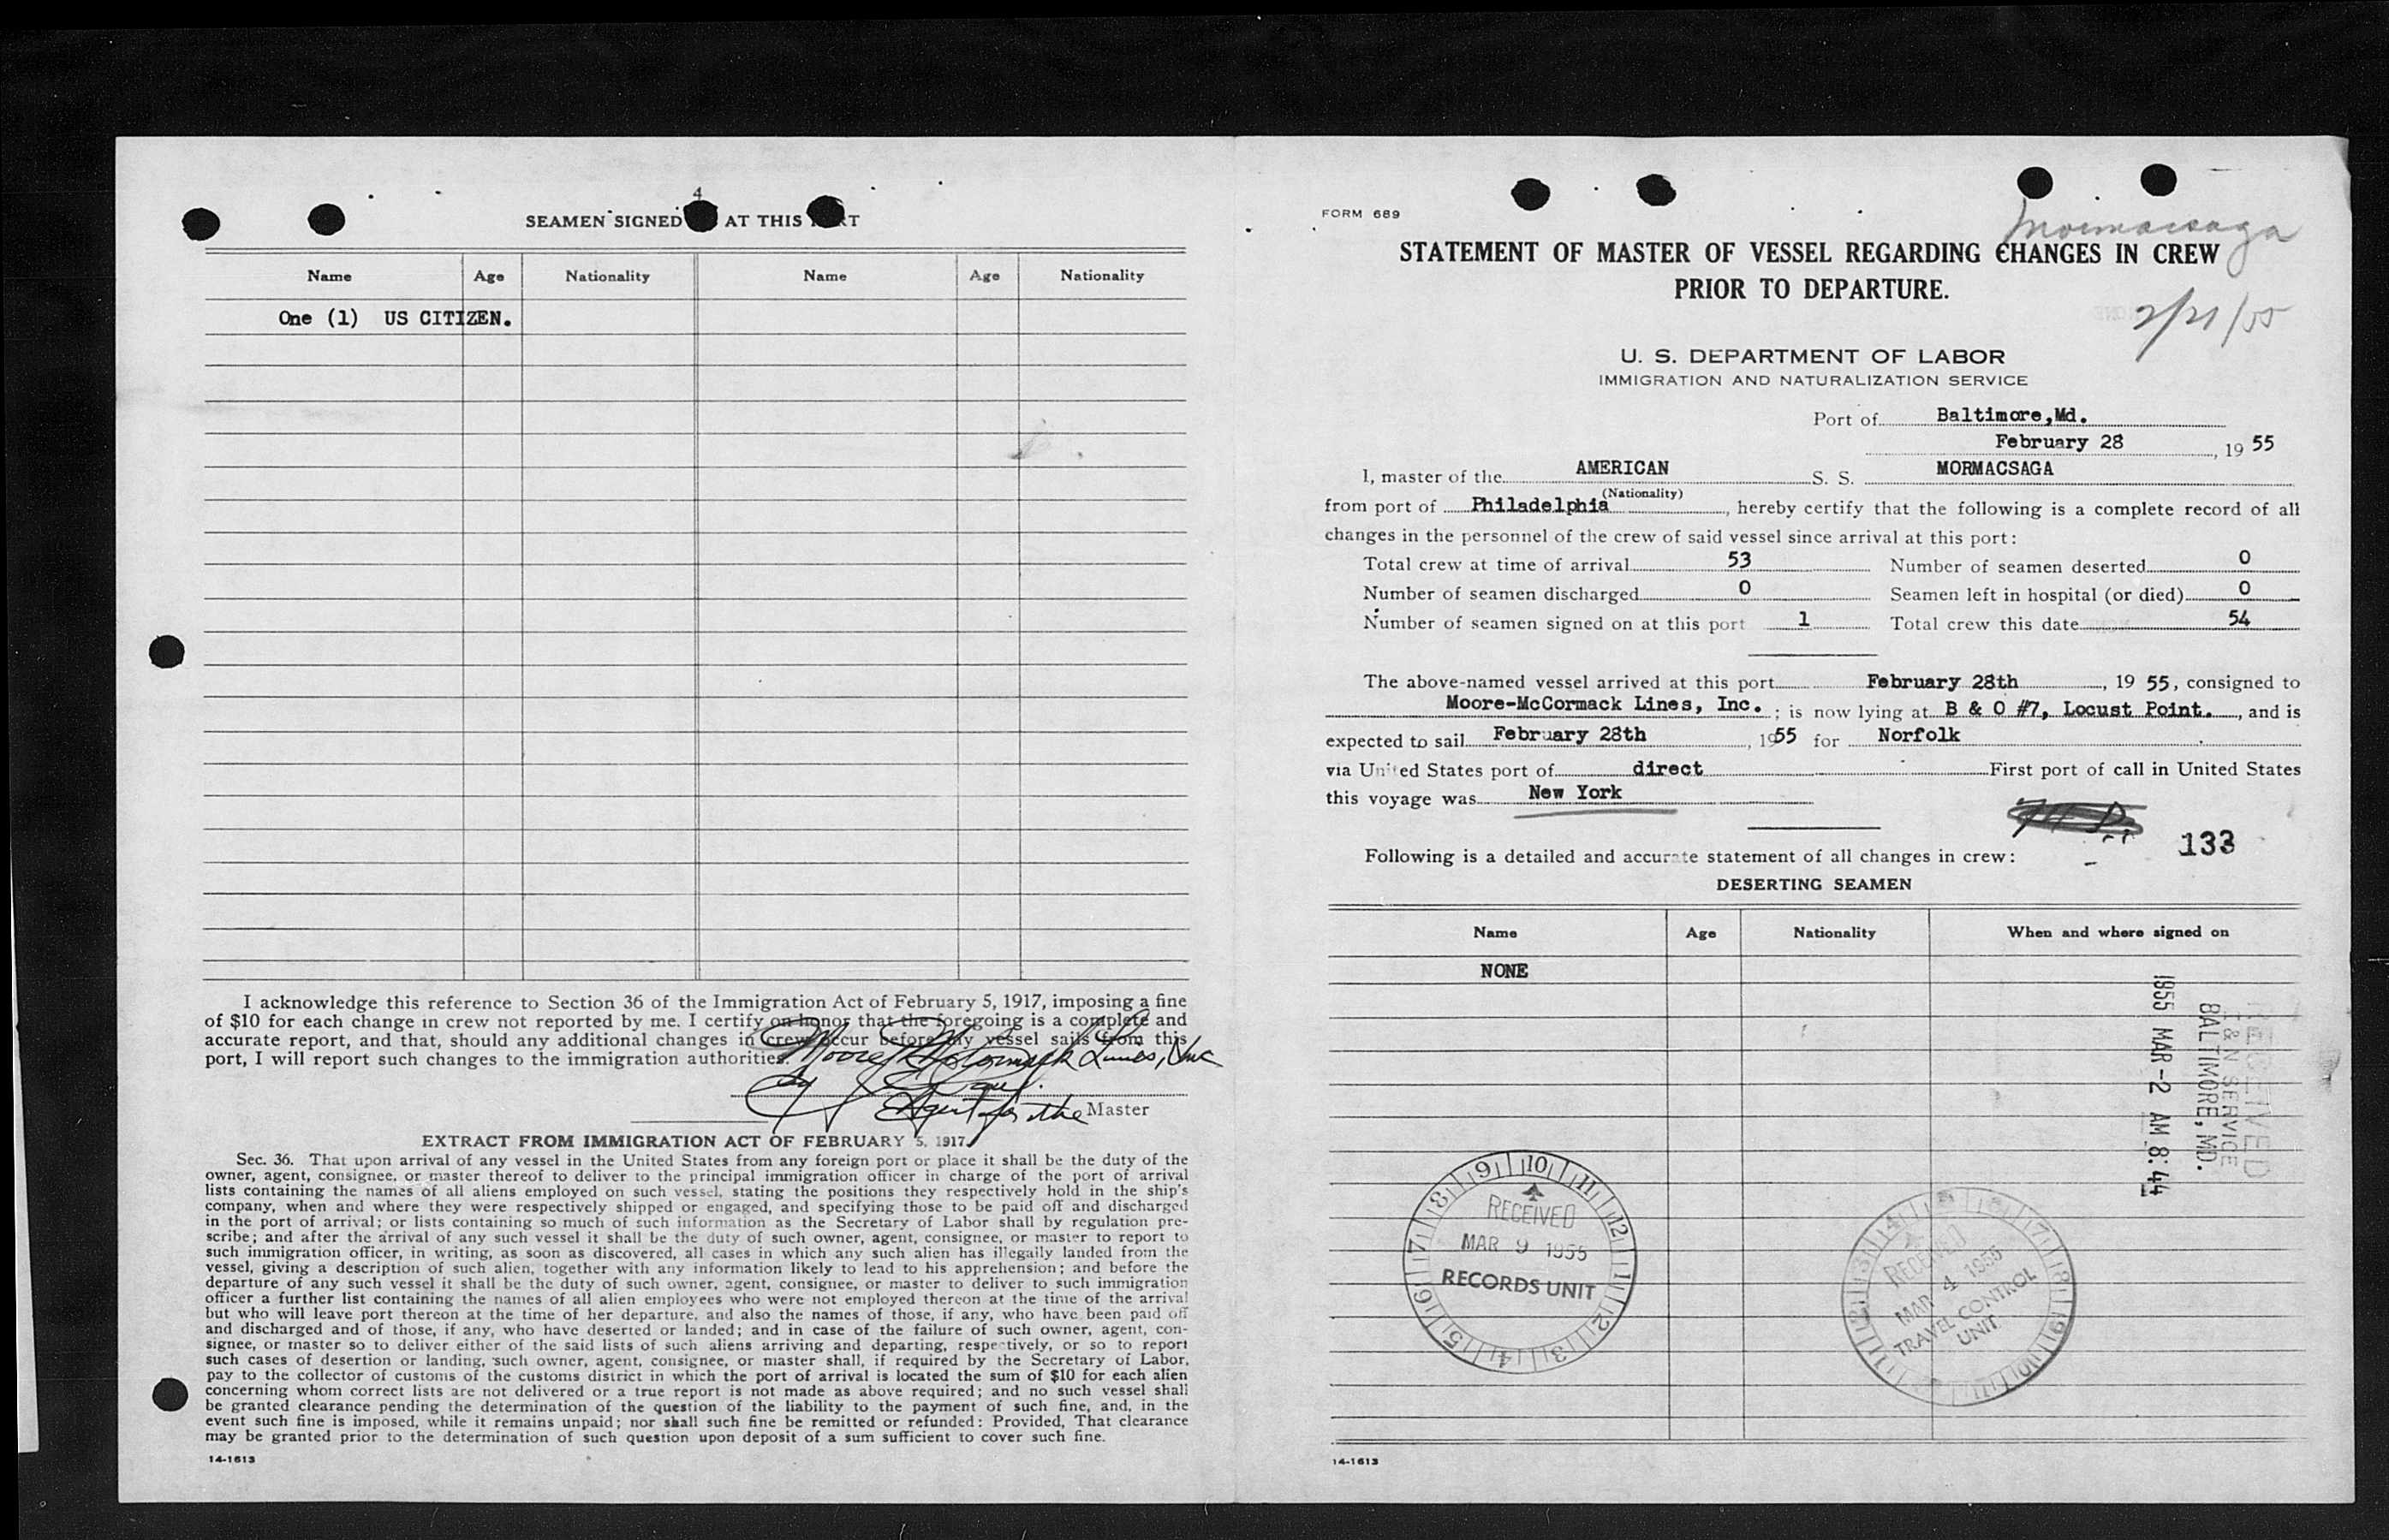 4
SEAMEN SIGNED AT THIS
Name Age Nationality Name Age Nationality
One (1) US CITIZEN.
I acknowledge this reference to Section 36 of the Immigration Act of February 5, 1917, imposing a fine
of $10 for each change in crew not reported by me. I certify on honor that the foregoing is a complete and
accurate report, and that, should any additional changes in crew occur before my vessel sails from this
port, I will report such changes to the immigration authorities.
Moore-McCormack Lines, Inc
by
Agent for the Master
EXTRACT FROM IMMIGRATION ACT OF FEBRUARY 5, 1917.
Sec. 36. That upon arrival of any vessel in the United States from any foreign port or place it shall be the duty of the
owner, agent, consignee, or master thereof to deliver to the principal immigration officer in charge of the port of arrival
lists containing the names of all aliens employed on such vessel, stating the positions they respectively hold in the ship's
company, when and where they were respectively shipped or engaged, and specifying those to be paid off and discharged
in the port of arrival; or lists containing so much of such information as the Secretary of Labor shall by regulation pre-
scribe; and after the arrival of any such vessel it shall be the duty of such owner, agent, consignee, or master to report to
such immigration officer, in writing, as soon as discovered, all cases in which any such alien has illegally landed from the
vessel, giving a description of such alien, together with any information likely to lead to his apprehension; and before the
departure of any such vessel it shall be the duty of such owner, agent, consignee, or master to deliver to such immigration
officer a further list containing the names of all alien employees who were not employed thereon at the time of the arrival
but who will leave port thereon at the time of her departure, and also the names of those, if any, who have been paid off
and discharged and of those, if any, who have deserted or landed; and in case of the failure of such owner, agent, con-
signee, or master so to deliver either of the said lists of such aliens arriving and departing, respectively, or so to report
such cases of desertion or landing, such owner, agent, consignee, or master shall, if required by the Secretary of Labor,
pay to the collector of customs of the customs district in which the port of arrival is located the sum of $10 for each alien
concerning whom correct lists are not delivered or a true report is not made as above required; and no such vessel shall
be granted clearance pending the determination of the question of the liability to the payment of such fine, and, in the
event such fine is imposed, while it remains unpaid; nor shall such fine be remitted or refunded: Provided, That clearance
may be granted prior to the determination of such question upon deposit of a sum sufficient to cover such fine.
14-1613
FORM 689
Mormacsaga
STATEMENT OF MASTER OF VESSEL REGARDING CHANGES IN CREW
PRIOR TO DEPARTURE.
2/21/55
U. S. DEPARTMENT OF LABOR
IMMIGRATION AND NATURALIZATION SERVICE
Port of Baltimore,Md.
February 28, 19 55
I, master of the AMERICAN S. S. MORMACSAGA
(Nationality)
from port of Philadelphia, hereby certify that the following is a complete record of all
changes in the personnel of the crew of said vessel since arrival at this port:
Total crew at time of arrival 53 Number of seamen deserted 0
Number of seamen discharged 0 Seamen left in hospital (or died) 0
Number of seamen signed on at this port 1 Total crew this date 54
The above-named vessel arrived at this port February 28th, 19 55, consigned to
Moore-McCormack Lines, Inc. ; is now lying at B & O #7, Locust Point., and is
expected to sail February 28th, 1955 for Norfolk
via United States port of direct First port of call in United States
this voyage was New York
133
Following is a detailed and accurate statement of all changes in crew:
DESERTING SEAMEN
Name Age Nationality When and where signed on
NONE
RECEIVED
I & N SERVICE
BALTIMORE, MD.
1955 MAR -2 AM 8:44
9 10 11 12 1 2 3 4 5 6 7 8
RECEIVED
MAR 9 1955
RECORDS UNIT
4 5 6 7 8 9 10 11 12 1 2 3
RECEIVED
MAR 4 1955
TRAVEL CONTROL
UNIT
14-1613